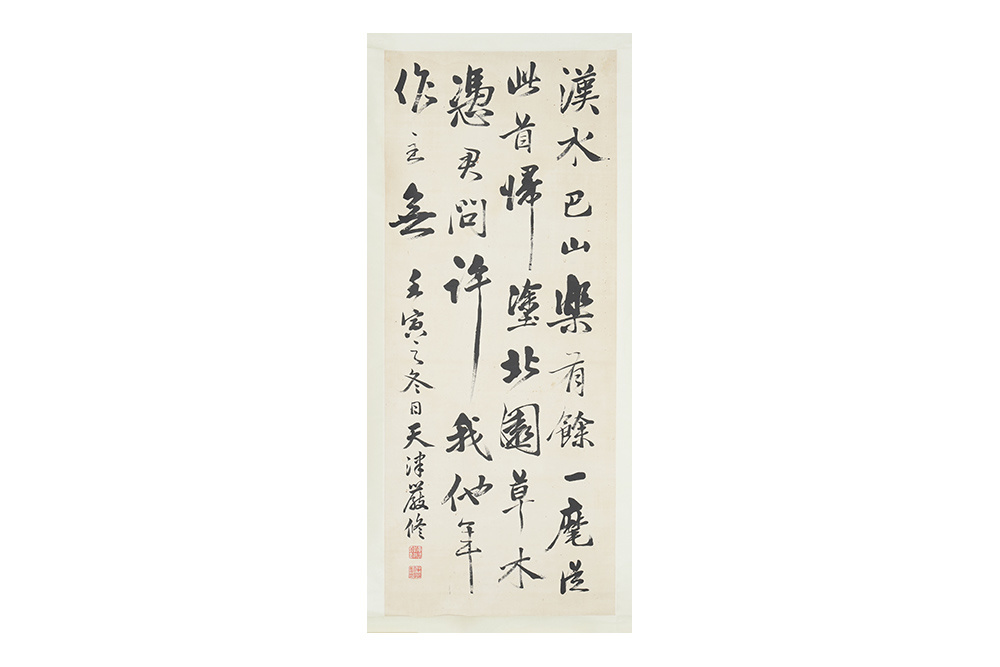 漢水巴山樂有餘一麾從
此首歸塗北園草木
憑君問許我他年
作主無
壬寅之冬日天津嚴修